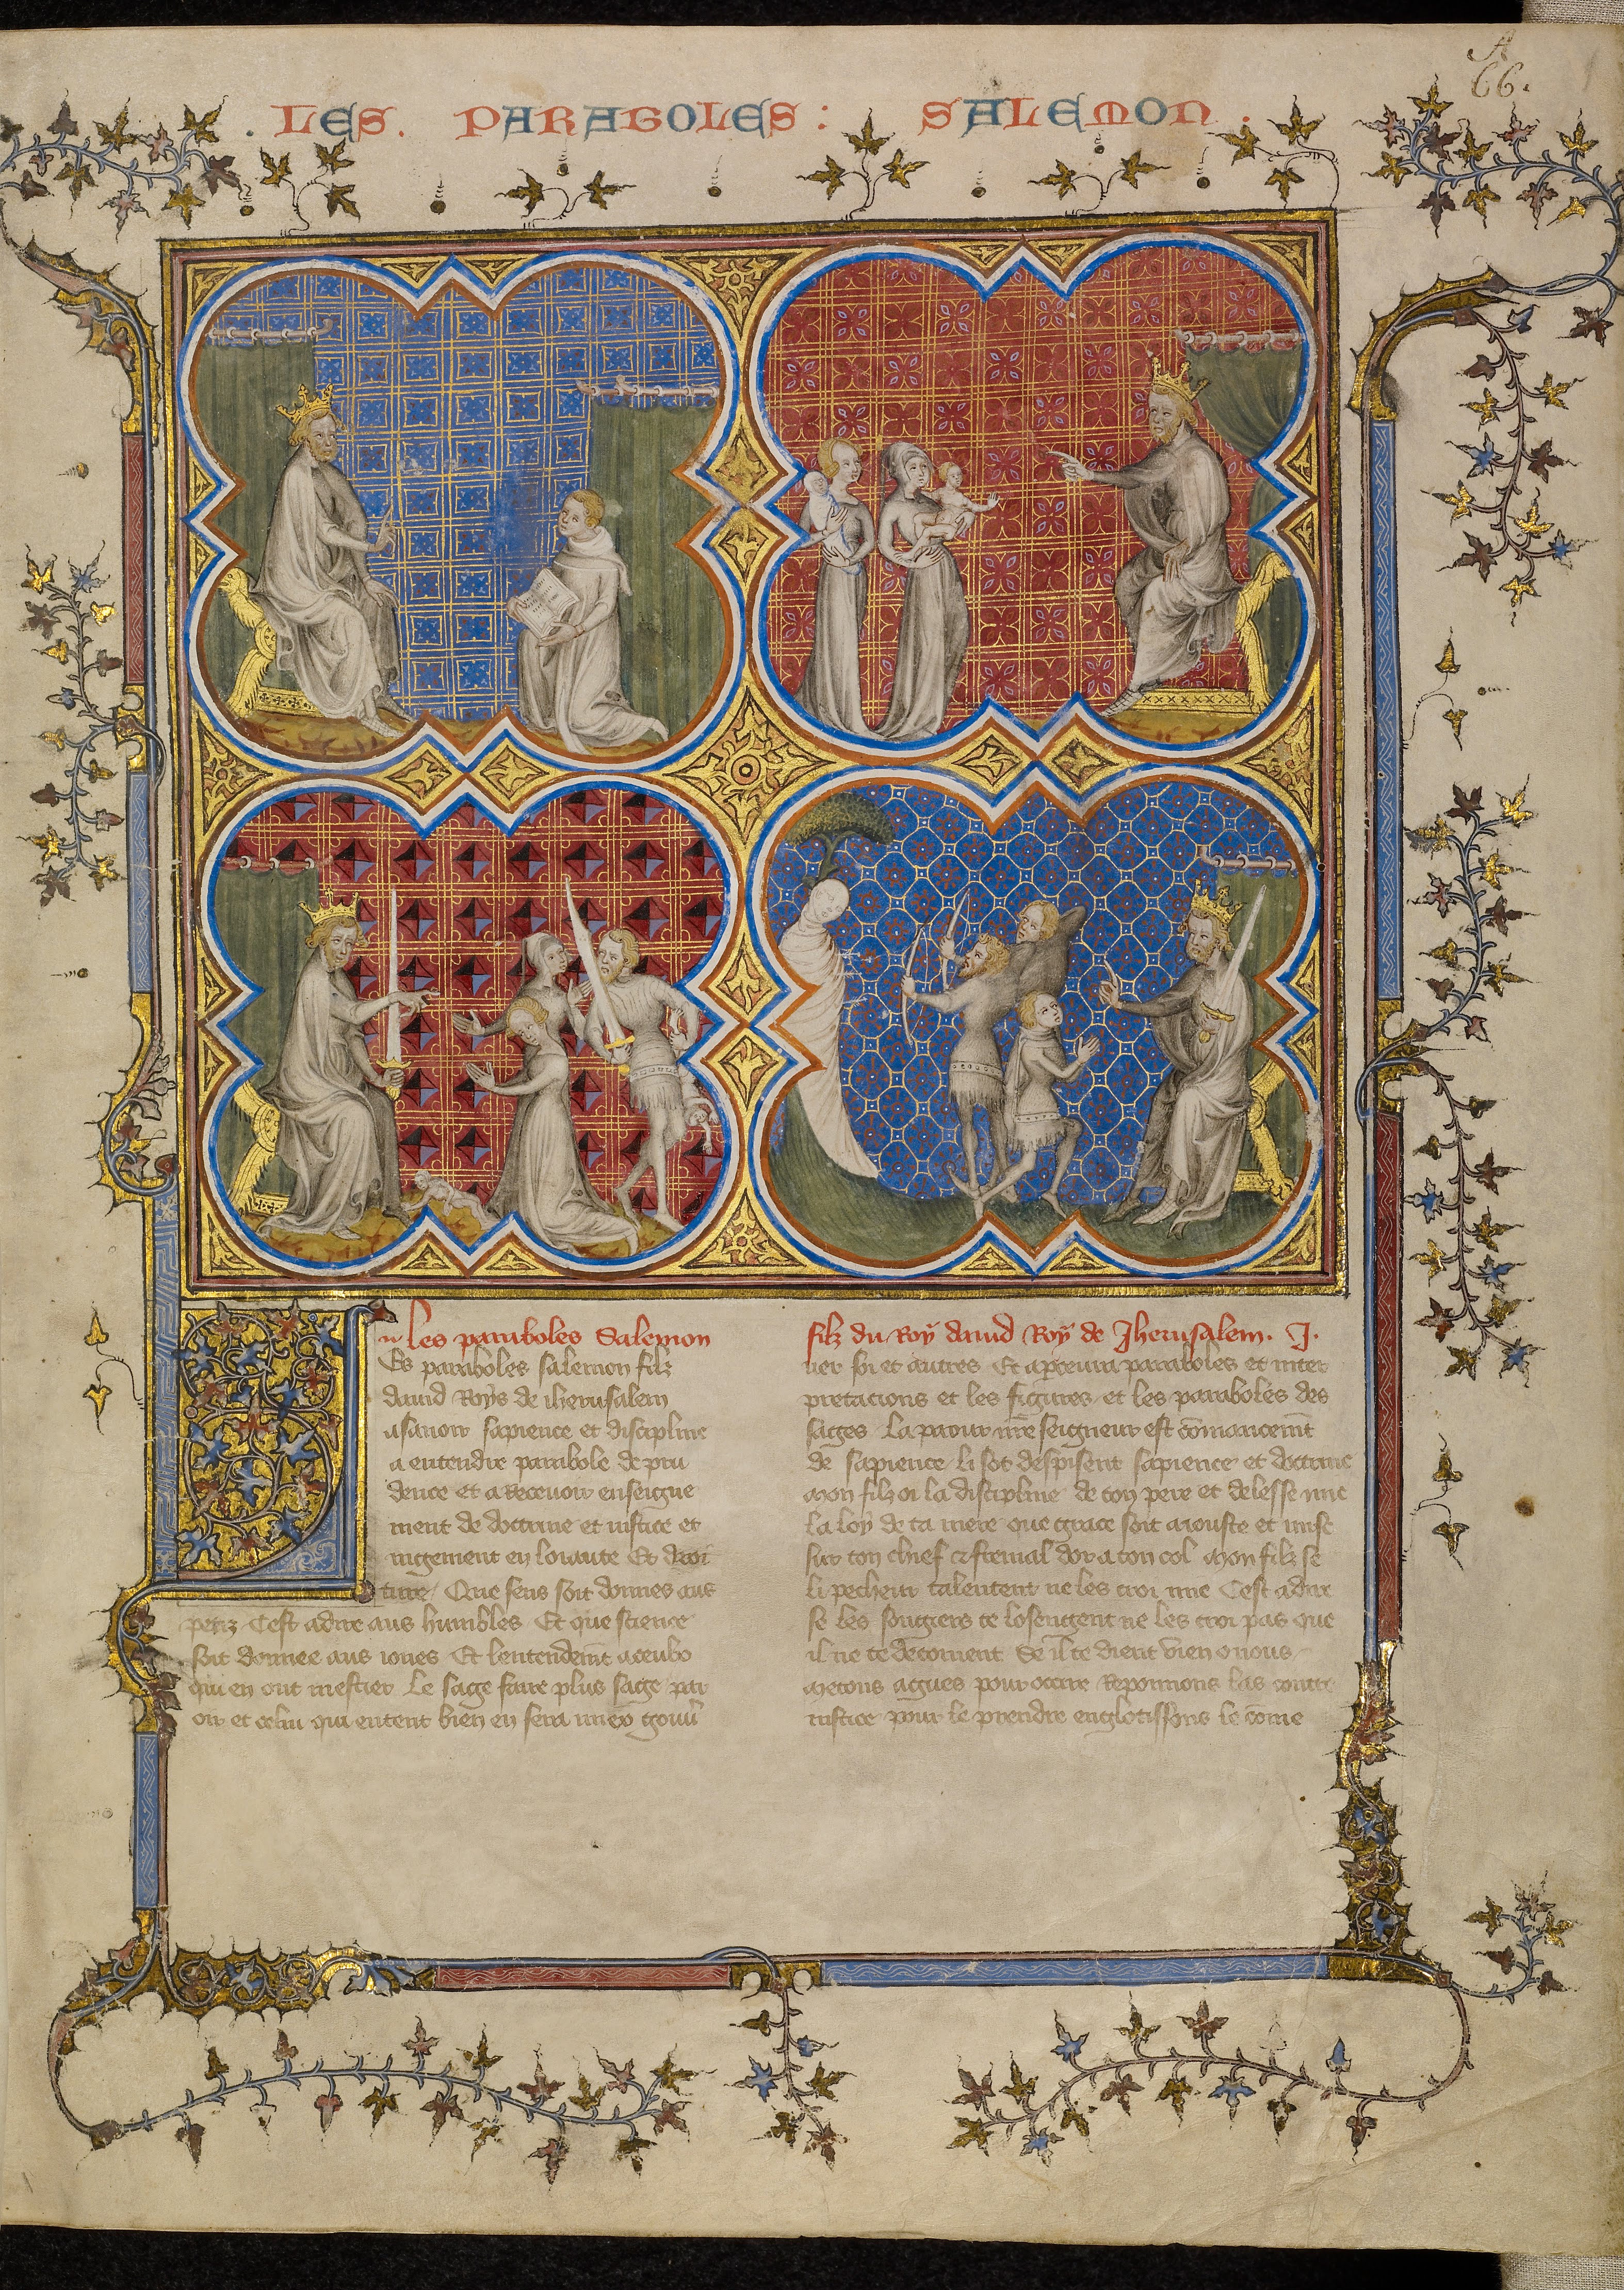 A
66.
. LES. PARABOLES : SALEMON .
les paraboles Salemon
Es paraboles salemon filz
dauid Roys de iherusalem
asauoir sapience et discipline
a entendre parabole de pru
dence et a Receuoir enseigne
ment de doctrine et iustice et
iugement en loiaute Et droi
ture / Que sens soit donnes aus
petiz Cest adire aus humbles Et que science
soit donnee aus iones Et lentendemt a ceulz
qui en ont mestier Le sage faire plus sage par
oir et celui qui entent bien en sera miex gouu
filz du Roy dauid Roy de Jherusalem. J.
ner soi et autres Et apceura paraboles et inter
pretacions et les figures et les paraboles des
sages La paour nre seigneur est comancemt
de sapience li sot despisent sapience et doctrine
Mon filz oi la discipline de ton pere et delesse mie
la loy de ta mere que grace soit aiouste et mise
sur ton chief et fremal dor a ton col Mon filz se
li pecheur talentent ne les croi mie Cest adire
se les te losengent ne les croi pas que
il ne te decoiuent Se il te dient vien o nous
Metons agues pour occire Reponnons las contre
iustice pour le prendre englotissons le come